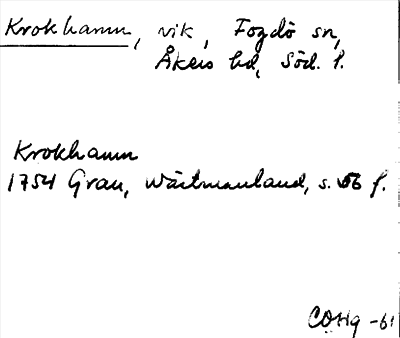 Krokhamn, vik, Fogdö sn,
Åkers hd, Söd. l.
Krokhamn
1754 Grau, Wästmanland, s. 56 f.
COHg -61